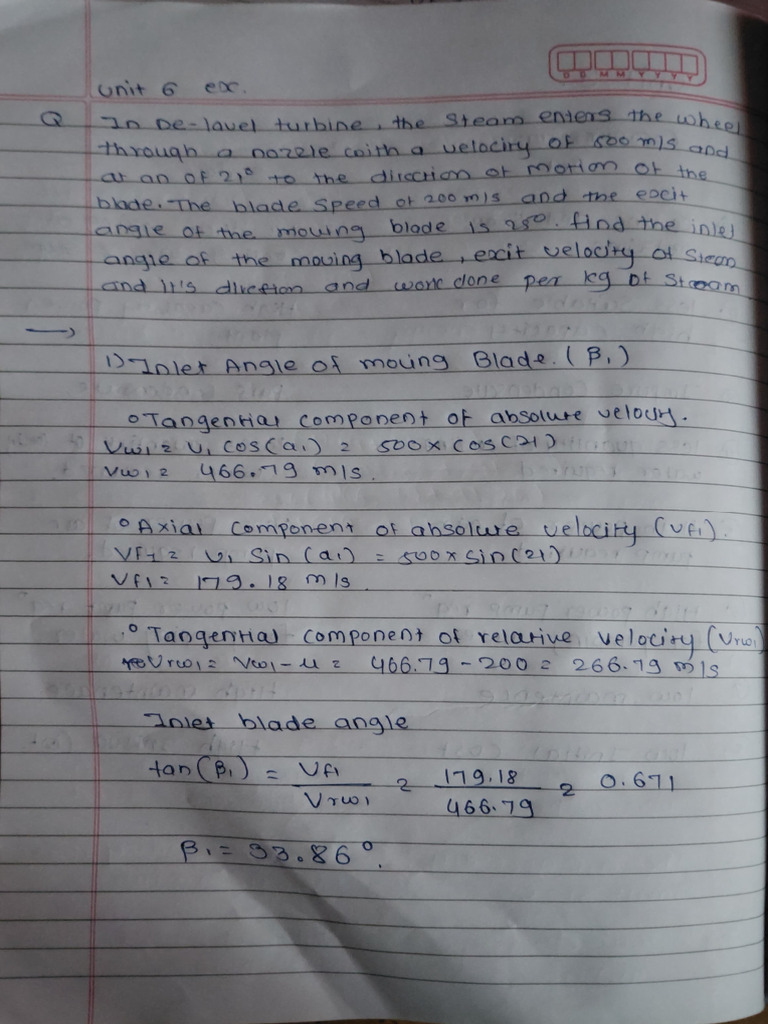 D D M M Y Y Y Y
Unit 6 ex.
Q In De-lavel turbine, the Steam enters the wheel
through a nozzle with a velocity of 500 m/s and
at an of 21° to the direction of motion of the
blade. The blade speed of 200 m/s and the exit
angle of the moving blade is 25°. find the inlet
angle of the moving blade, exit velocity of Steam
and it's direction and work done per kg of Steam
→
1) Inlet Angle of moving Blade. (β1)
o Tangential component of absolute velocity.
Vw1 = V1 cos(a1) = 500 x cos(21)
Vw1 = 466.79 m/s.
o Axial component of absolute velocity (Vf1).
Vf1 = V1 Sin (a1) = 500 x sin(21)
Vf1 = 179.18 m/s.
o Tangential component of relative velocity (Vrw1)
Vrw1 = Vw1 - u = 466.79 - 200 = 266.79 m/s
Inlet blade angle
tan(β1) = Vf1 / Vrw1 = 179.18 / 466.79 = 0.671
β1 = 33.86°.